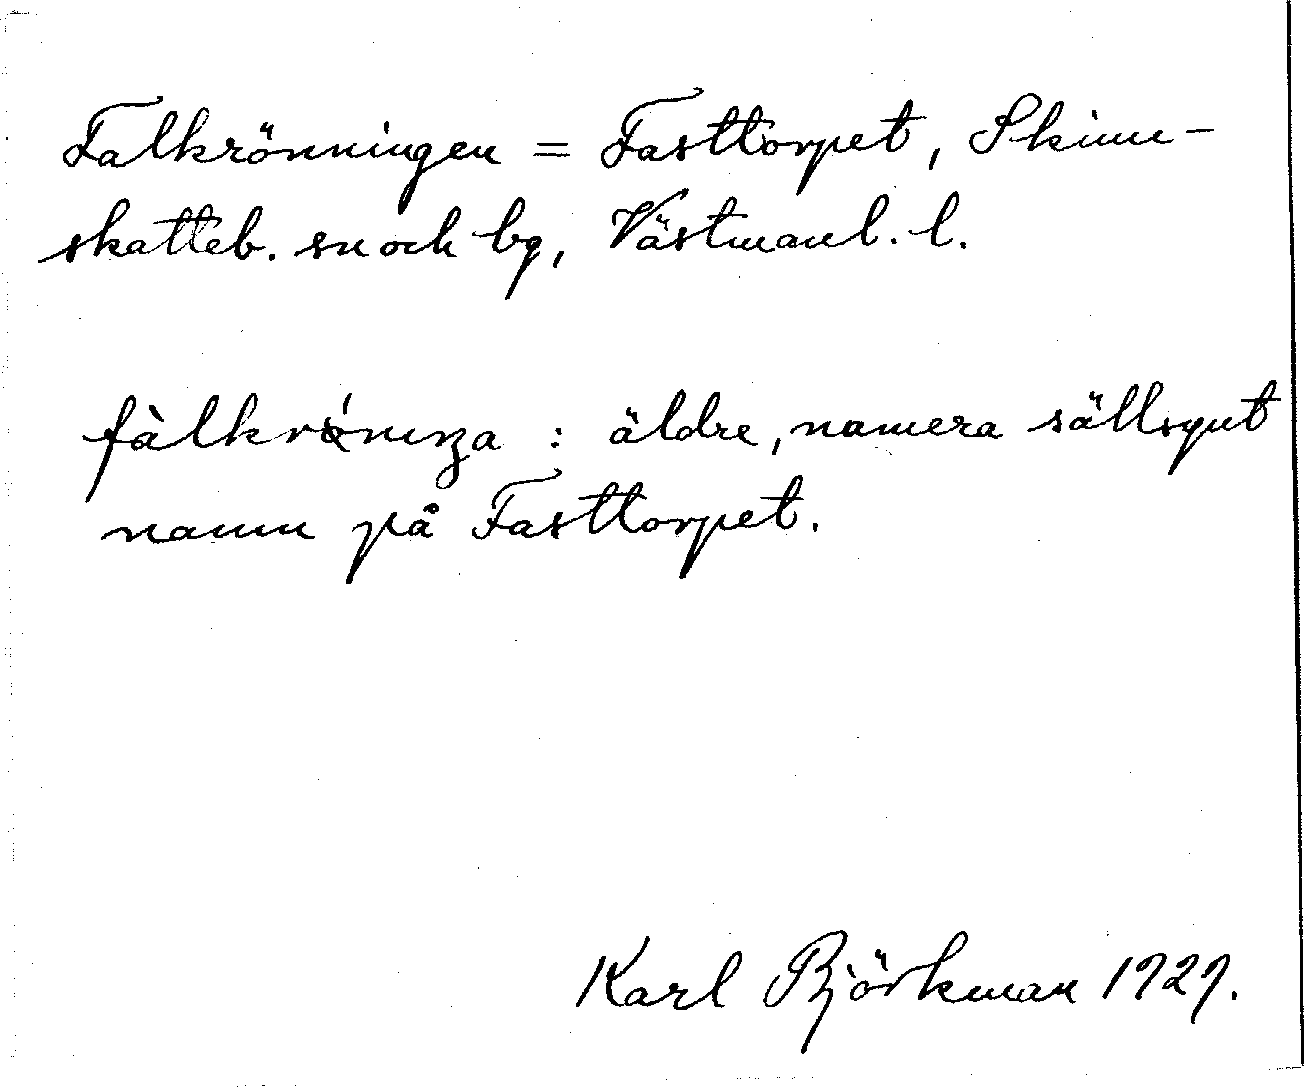 Falkrönningen = Fasttorpet, Skinn-
skatteb. sn och bg, Västmanl. l.
fàlkrǿnıŋa : äldre, numera sällsynt
namn på Fasttorpet.
Karl Björkman 1929.